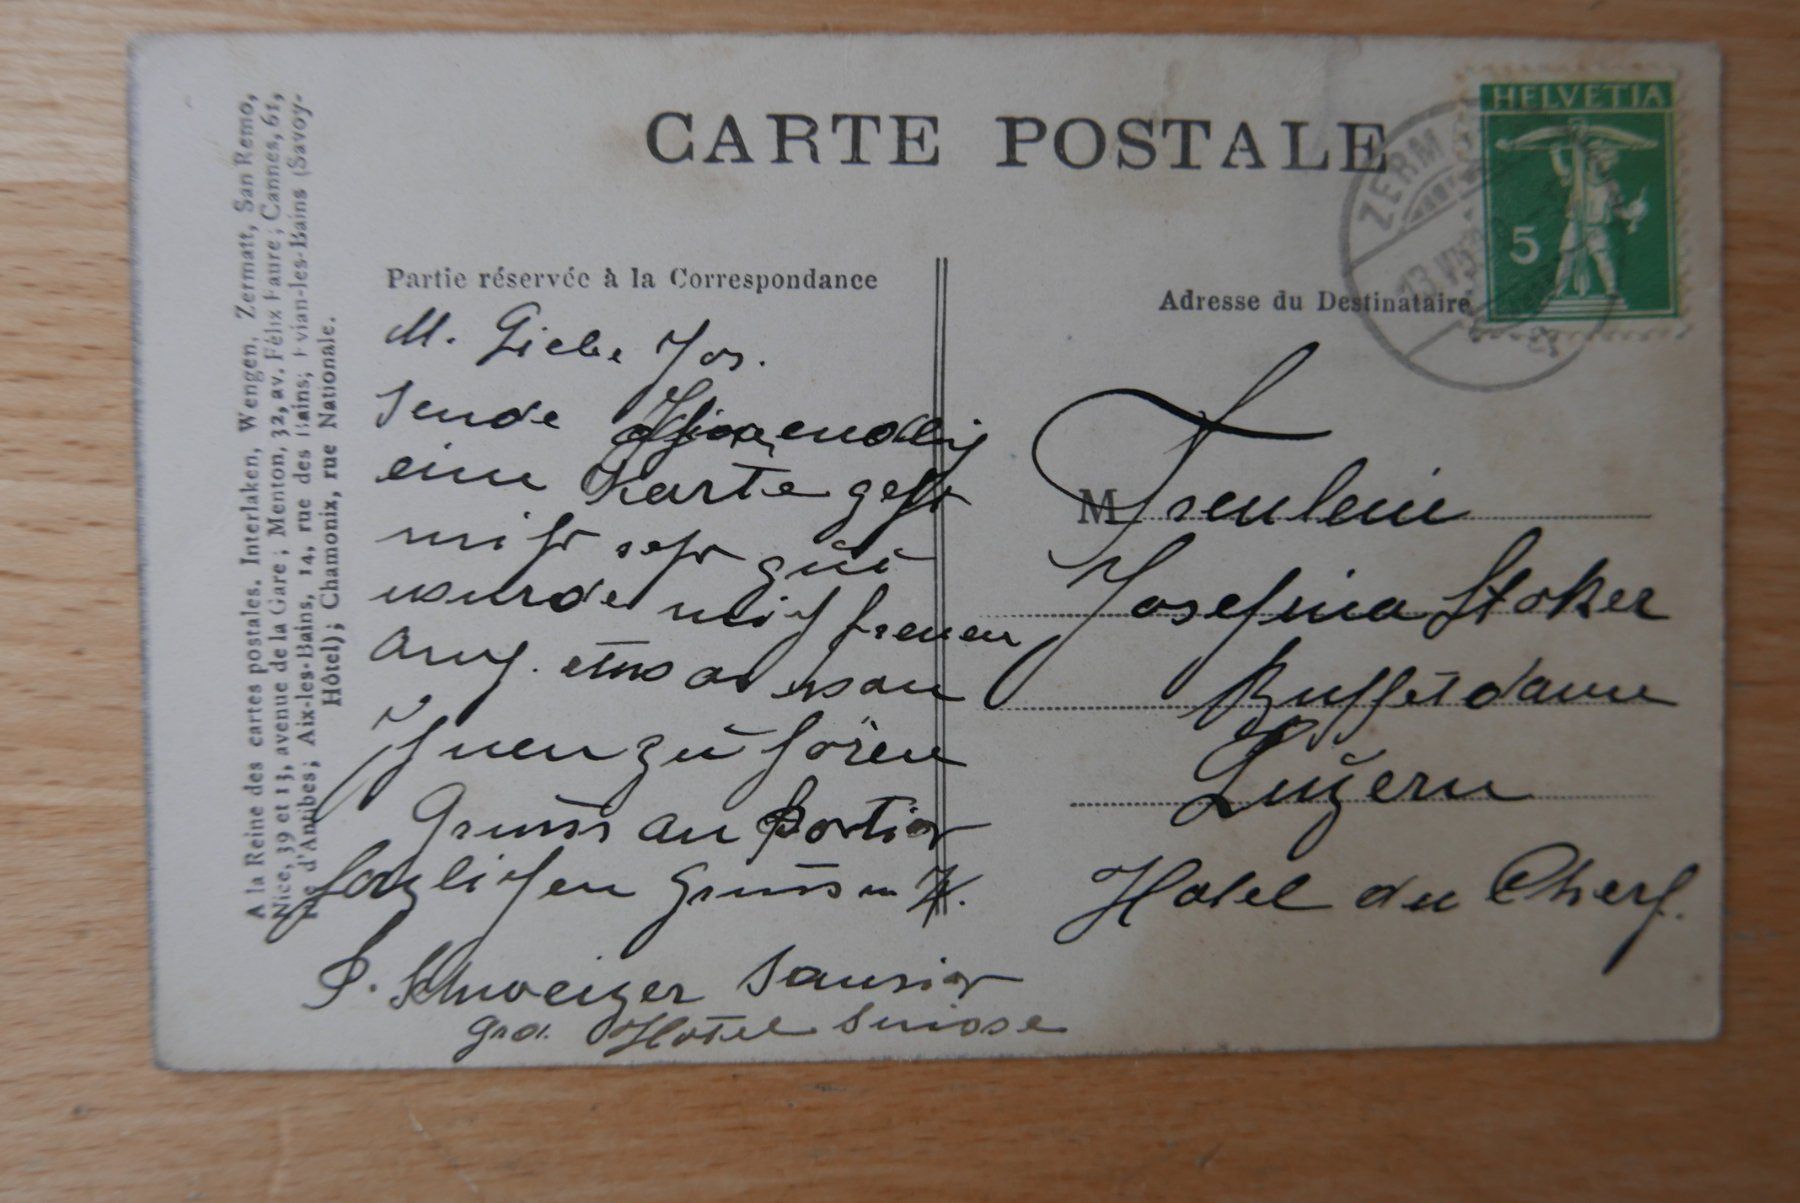 CARTE POSTALE
HELVETIA
5
ZERM
13.VII
A la Reine des cartes postales. Interlaken, Wengen, Zermatt, San Remo,
Nice, 39 et 13, avenue de la Gare; Menton, 32, av. Félix Faure; Cannes, 61,
rue d'Antibes; Aix-les-Bains, 14, rue des Bains; Evian-les-Bains (Savoy-
Hôtel); Chamonix, rue Nationale.
Partie réservée à la Correspondance
M. Liebe Jos.
Sende endlig
eine Karte geht
mihr sehr gut
wurde mich freuen
auch etwas von
Ihnen zu hören
Gruss an Portier
herzlichen Gruss
S. Schweizer
Hotel Suisse
Adresse du Destinataire
M Freulein
Josefina Stoker
Buffetdame
Luzern
Hotel du Cherf.